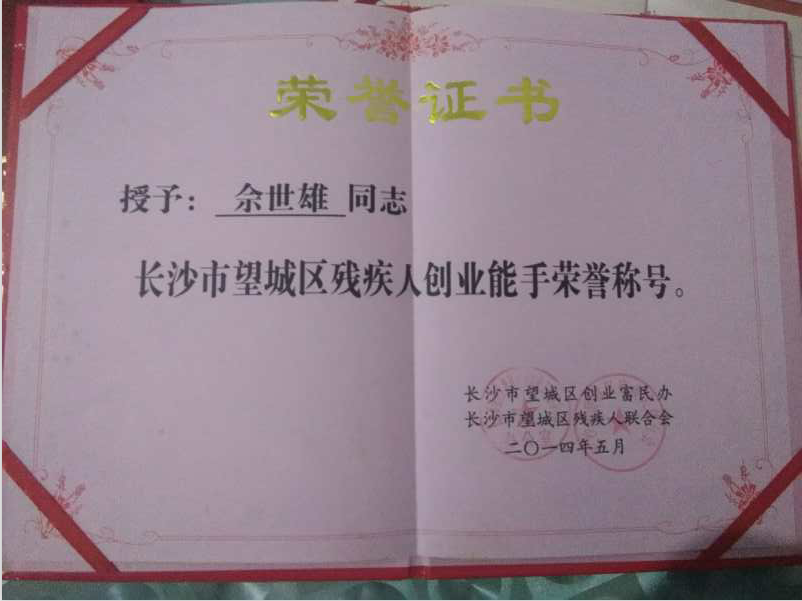 荣誉证书
授予：佘世雄同志
长沙市望城区残疾人创业能手荣誉称号。
长沙市望城区创业富民办
长沙市望城区残疾人联合会
二〇一四年五月